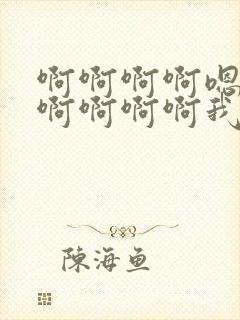 啊啊啊啊嗯
啊啊啊啊我
陳海鱼